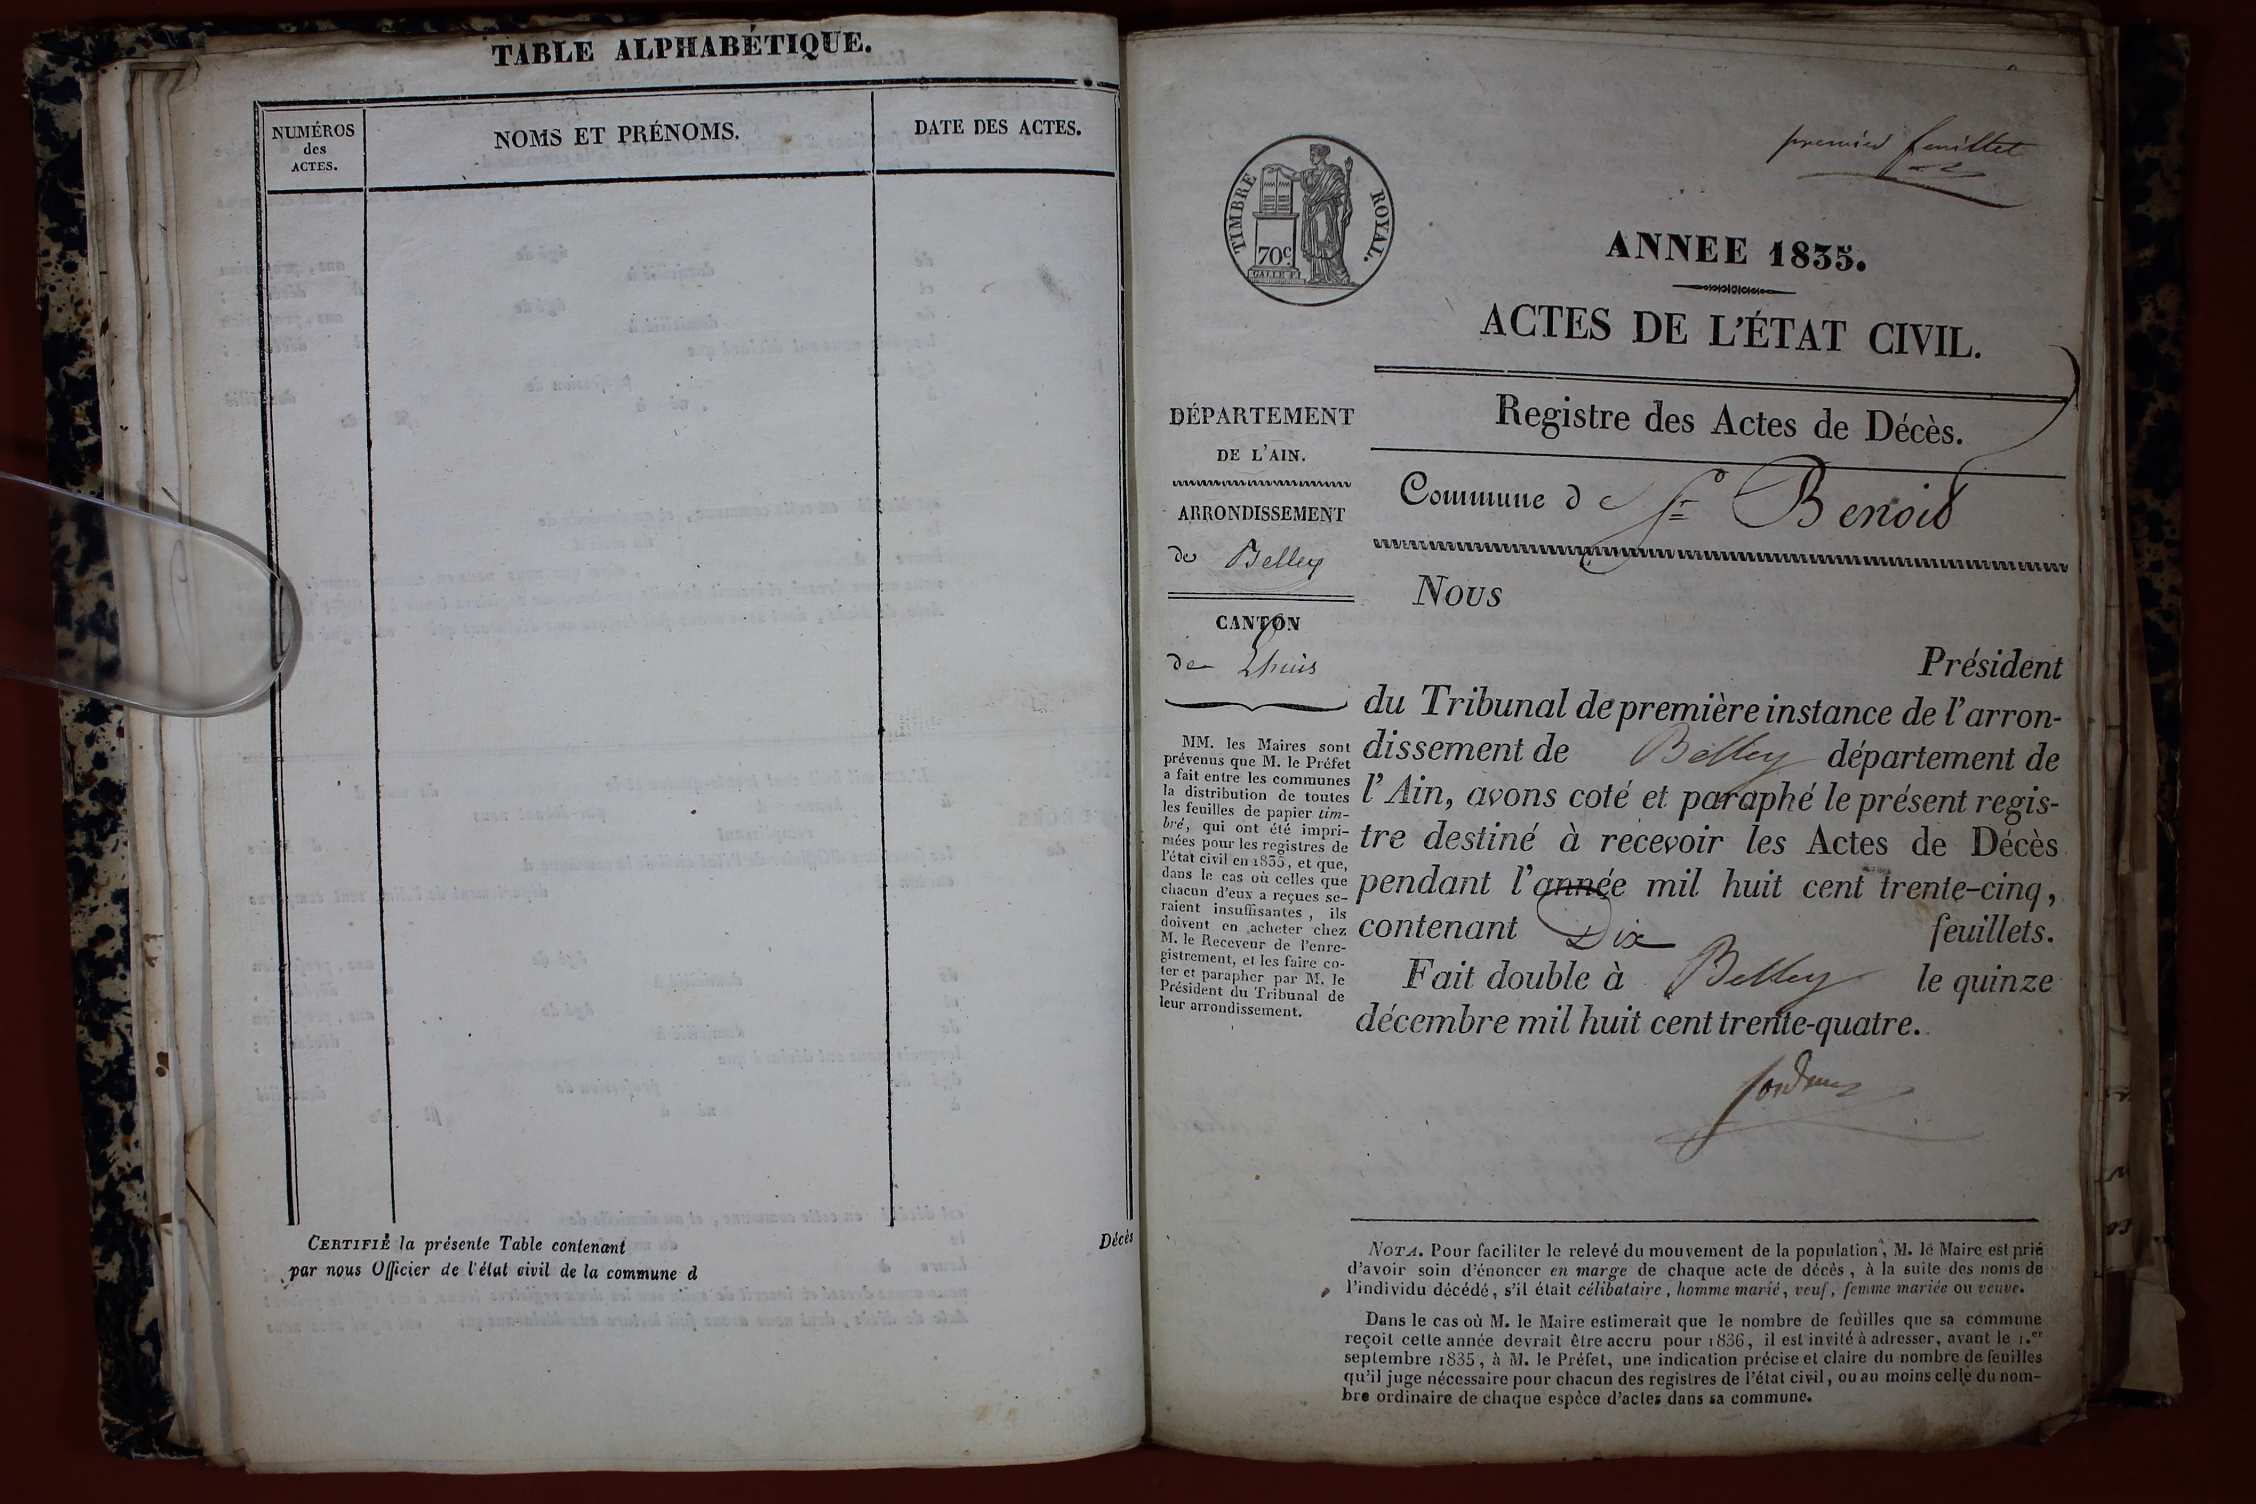 TABLE ALPHABÉTIQUE.
NUMÉROS
des
ACTES.
NOMS ET PRÉNOMS.
DATE DES ACTES.
CERTIFIÉ la présente Table contenant Décès
par nous Officier de l'état civil de la commune d
premier feuillet
TIMBRE ROYAL.
70c
ANNEE 1835.
ACTES DE L'ÉTAT CIVIL.
DÉPARTEMENT
DE L'AIN.
ARRONDISSEMENT
de Belley
CANTON
de Lhuis
MM. les Maires sont
prévenus que M. le Préfet
a fait entre les communes
la distribution de toutes
les feuilles de papier tim-
bré, qui ont été impri-
mées pour les registres de
l'état civil en 1835, et que,
dans le cas où celles que
chacun d'eux a reçues se-
raient insuffisantes, ils
doivent en acheter chez
M. le Receveur de l'enre-
gistrement, et les faire co-
ter et parapher par M. le
Président du Tribunal de
leur arrondissement.
Registre des Actes de Décès.
Commune de St Benoit
Nous
Président
du Tribunal de première instance de l'arron-
dissement de Belley département de
l'Ain, avons coté et paraphé le présent regis-
tre destiné à recevoir les Actes de Décès
pendant l'année mil huit cent trente-cinq,
contenant Dix feuillets.
Fait double à Belley le quinze
décembre mil huit cent trente-quatre.
NOTA. Pour faciliter le relevé du mouvement de la population, M. le Maire est prié
d'avoir soin d'énoncer en marge de chaque acte de décès, à la suite des noms de
l'individu décédé, s'il était célibataire, homme marié, veuf, femme mariée ou veuve.
Dans le cas où M. le Maire estimerait que le nombre de feuilles que sa commune
reçoit cette année devrait être accru pour 1836, il est invité à adresser, avant le 1.er
septembre 1835, à M. le Préfet, une indication précise et claire du nombre de feuilles
qu'il juge nécessaire pour chacun des registres de l'état civil, ou au moins celle du nom-
bre ordinaire de chaque espèce d'actes dans sa commune.